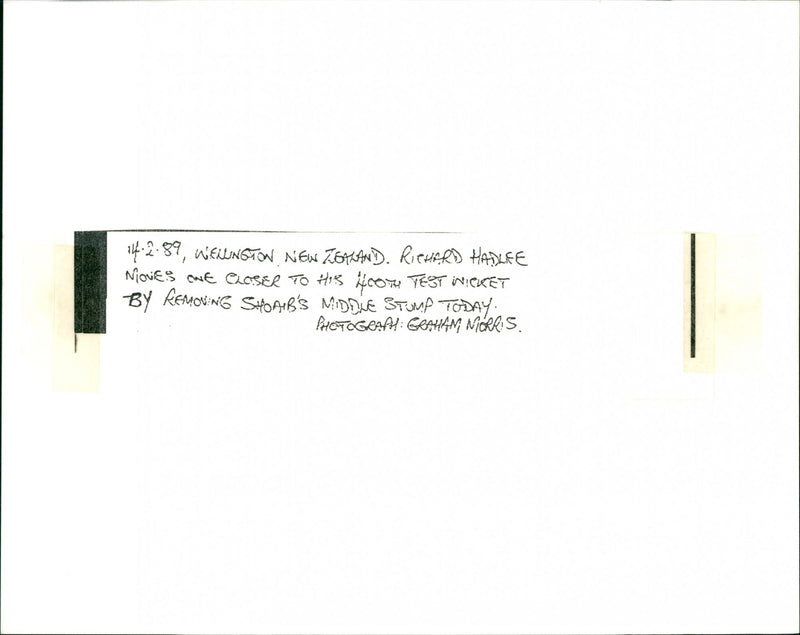 14·2·89, WELLINGTON, NEW ZEALAND. RICHARD HADLEE
MOVES ONE CLOSER TO HIS 400TH TEST WICKET
BY REMOVING SHOAIB'S MIDDLE STUMP TODAY.
PHOTOGRAPH: GRAHAM MORRIS.